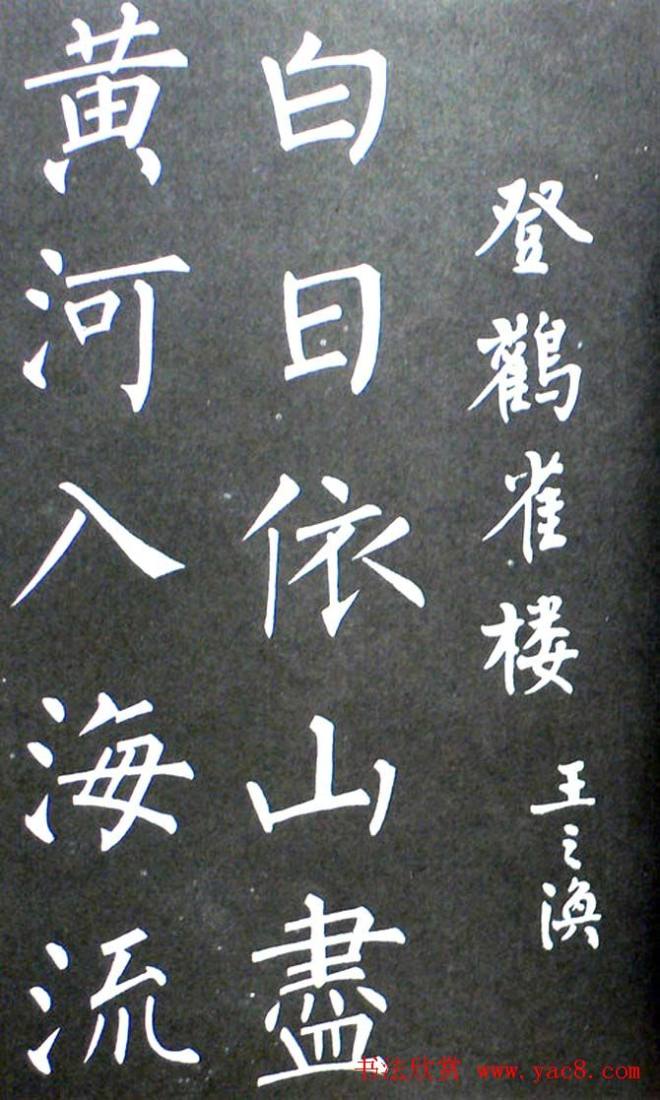 登鸛雀楼 王之渙
白日依山盡
黄河入海流
书法欣赏 www.yac8.com